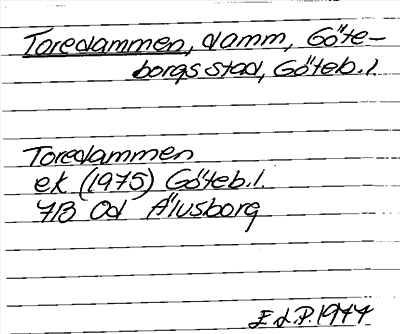 Toredammen, damm, Göte-
borgs stad, Göteb. l.
Toredammen
ek (1975) Göteb. l.
7B Od Älvsborg
E d. P. 1944